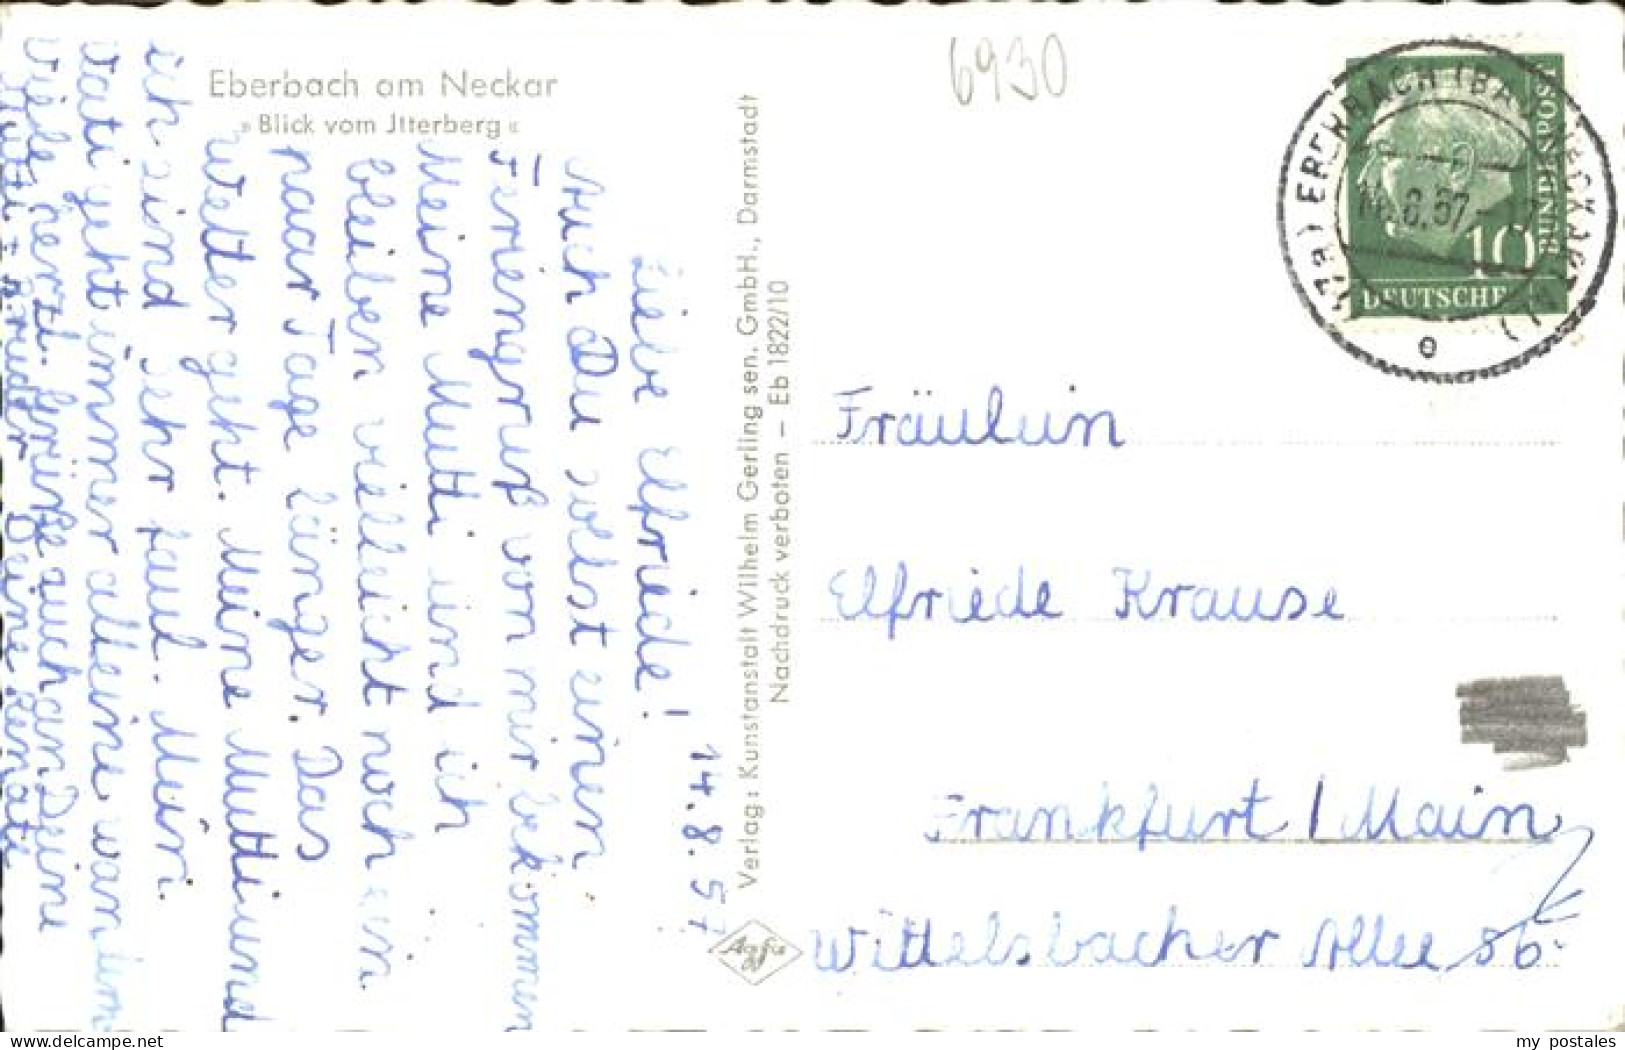 Eberbach am Neckar
»Blick vom Jtterberg«
6930
14.8.57
Liebe Elfriede!
Auch Du sollst einen
Feriengruß von mir bekommen
Meine Mutti und ich
bleiben vielleicht noch ein
paar Tage länger. Das
Wetter geht. Meine Mutti und
ich sind sehr faul. Mein
Vati geht immer alleine wandern
Viele herzl. Grüße auch an Deine
Mutti u. Bruder Deine Renate
Verlag: Kunstanstalt Wilhelm Gerling sen. GmbH., Darmstadt
Nachdruck verboten – Eb 1822/10
Agfa
(17a) EBERBACH (BADEN)
14.8.57
e
DEUTSCHE
BUNDESPOST
10
Fräulein
Elfriede Krause
Frankfurt / Main
Wittelsbacher Allee 56
my_postales